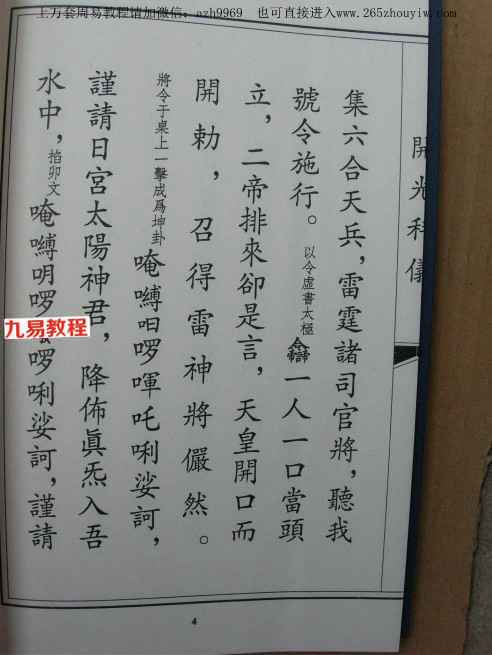 上万套周易教程请加微信：azh9969 也可直接进入www.265zhouyiw.com
開光科儀
集六合天兵，雷霆諸司官將，聽我
號令施行。以令虛書太極 一人一口當頭
立，二帝排來卻是言，天皇開口而
開勅，召得雷神將儼然。
將令于桌上一擊成爲坤卦 唵嚩呬啰㖠吒唎娑訶，
謹請日宮太陽神君，降佈眞炁入吾
水中，掐卯文 唵嚩明啰 啰唎娑訶，謹請
九易教程
4